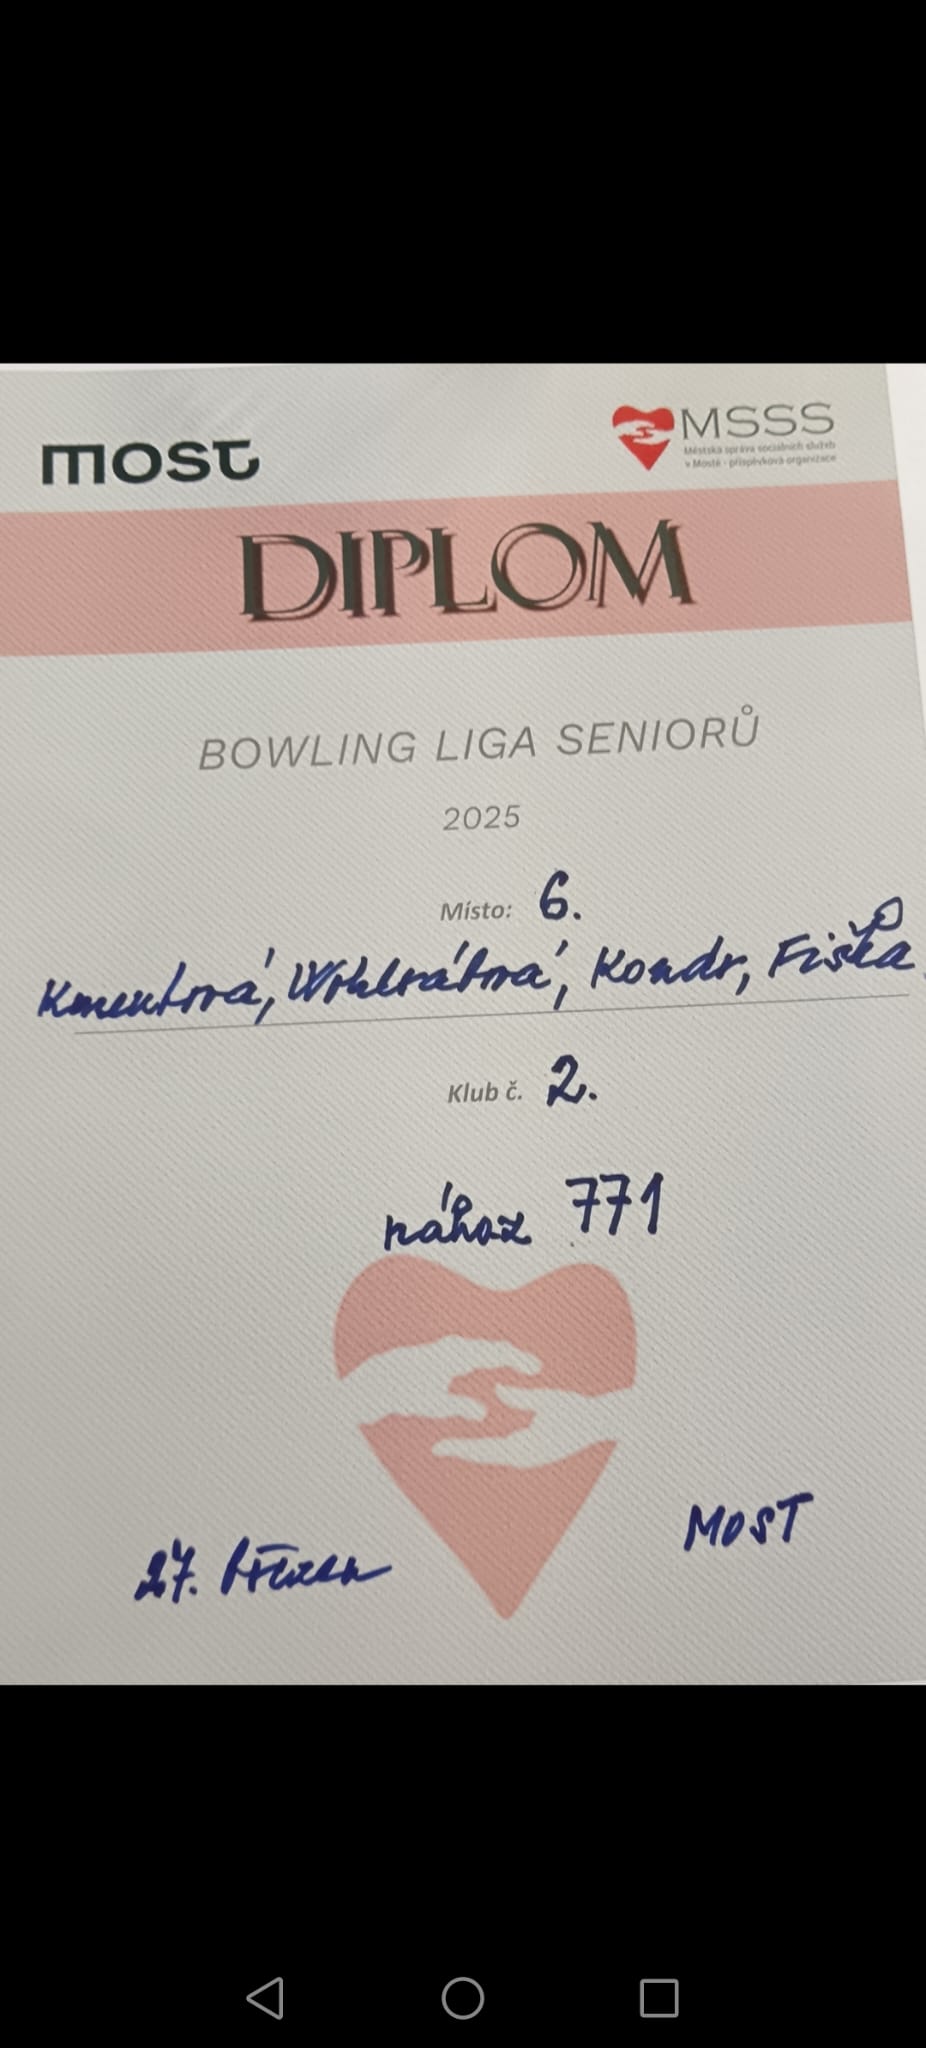 most
MSSS
Městská správa sociálních služeb
v Mostě - příspěvková organizace
DIPLOM
BOWLING LIGA SENIORŮ
2025
Místo: 6.
Kmentová, Wohlrátná, Kondr, Fiška
Klub č. 2.
nához 771
27. březen
MOST